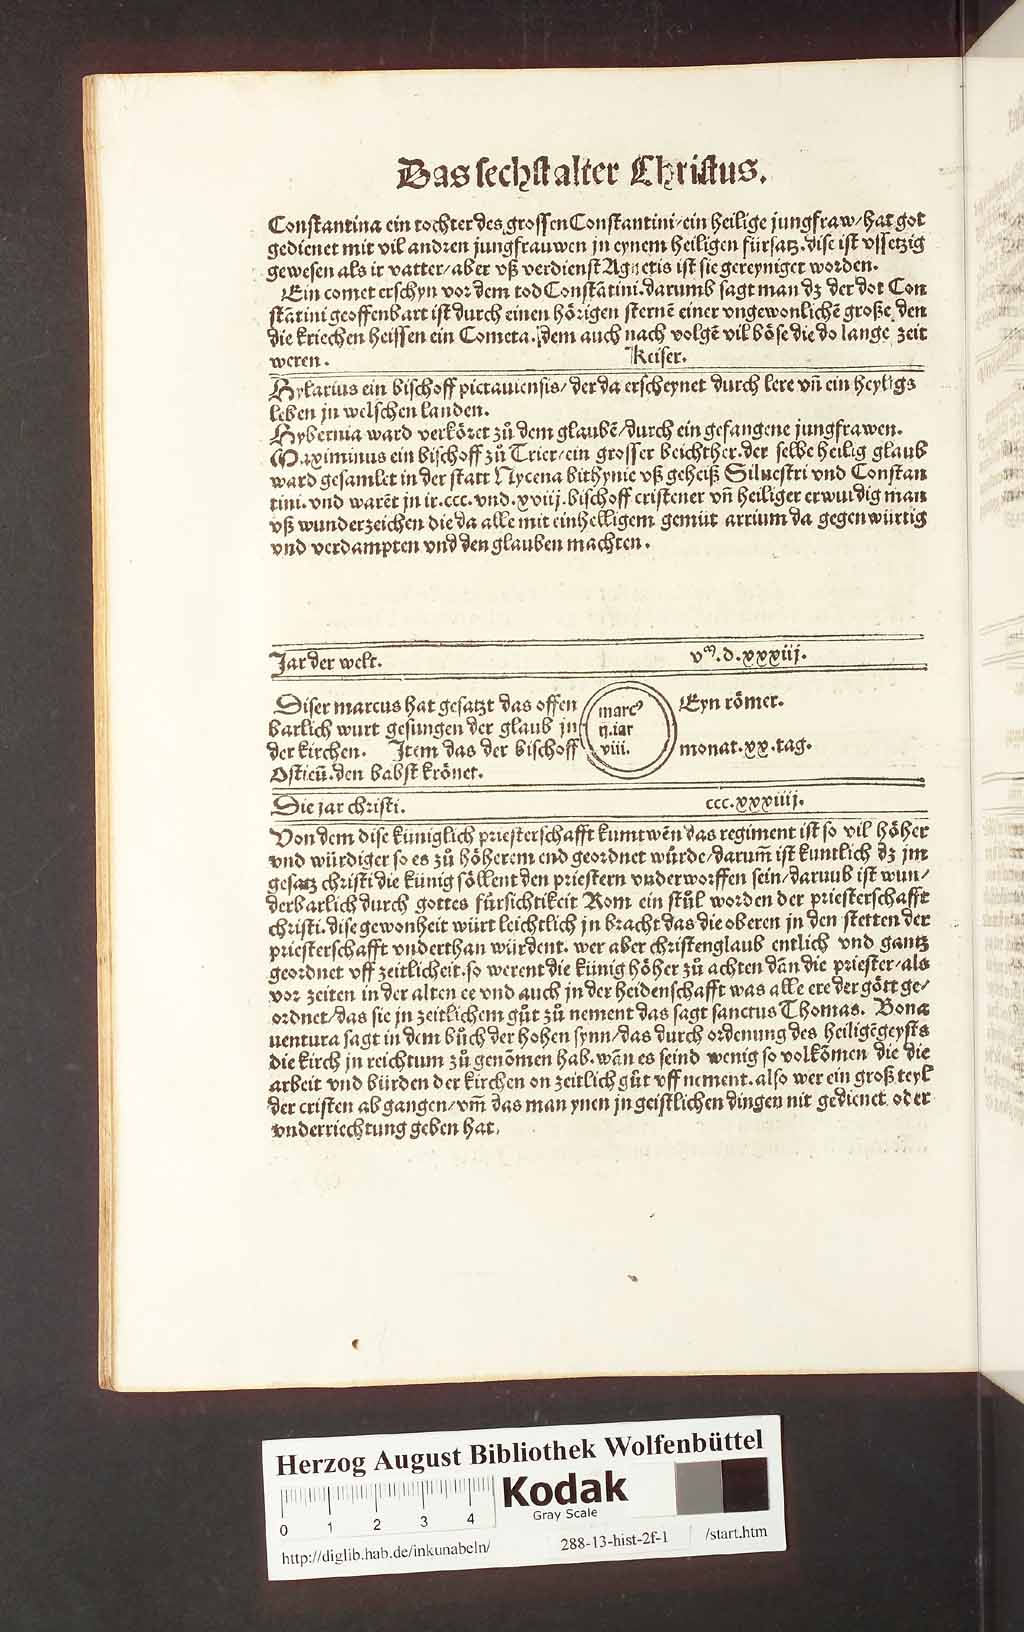 Das sechst alter Christus.
Constantina ein tochter des grossen Constantini/ein heilige jungfraw/hat got
gedienet mit vil andren jungfrauwen jn eynem heiligen fürsatz.dise ist vssetzig
gewesen als ir vatter/aber vß verdienst Agnetis ist sie gereyniget worden.
Ein comet erschyn vor dem tod Constātini.darumb sagt man dz der dot Con
stātini geoffenbart ist durch einen hörigen sternē einer vngewonlichē große den
die kriechen heissen ein Cometa.dem auch nach volgē vil böse die do lange zeit
weren.
Keiser.
Hylarius ein bischoff pictauiensis/der da erscheynet durch lere vñ ein heyligs
leben jn welschen landen.
Hybernia ward verköret zů dem glaubē/durch ein gefangene jungfrawen.
Maximinus ein bischoff zů Trier/ein grosser beichther.der selbe heilig glaub
ward gesamlet in der statt Nycena bithynie vß geheiß Siluestri vnd Constan
tini.vnd warēt jn ir.ccc.vnd.xviij.bischoff cristener vñ heiliger erwirdig man
vß wunderzeichen die da alle mit einhelligem gemüt arrium da gegenwürtig
vnd verdampten vnd den glauben machten.
Jar der welt.
vᵐ.d.xxxiij.
Diser marcus hat gesatzt das offen
barlich wurt gesungen der glaub jn
der kirchen. Item das der bischoff
Osticū.den babst krönet.
marcꝰ
ij.iar
viii.
Eyn römer.
monat.xx.tag.
Die jar christi.
ccc.xxxiiij.
Von dem dise küniglich priesterschafft kumt wēn das regiment ist so vil höher
vnd würdiger so es zů höherem end geordnet würde/darum̄ ist kuntlich dz jm
gesatz christi die künig söllent den priestern vnderworffen sein/darumb ist wun/
derbarlich durch gottes fürsichtikeit Rom ein stůl worden der priesterschafft
christi.dise gewonheit würt leichtlich jn bracht das die oberen jn den stetten der
priesterschafft vnderthan würdent. wer aber christenglaub entlich vnd gantz
geordnet vff zeitlicheit.so werent die künig höher zů achten dān die priester/als
vor zeiten in der alten ee vnd auch jn der heidenschafft was alle ere der gött ge/
ordnet/das sie jn zeitlichem gůt zů nement das sagt sanctus Thomas. Bona
uentura sagt in dem bůch der hohen synn/das durch ordenung des heiligē geysts
die kirch jn reichtum zů genōmen hab.wān es seind wenig so volkōmen die die
arbeit vnd bürden der kirchen on zeitlich gůt vff nement.also wer ein groß teyl
der cristen ab gangen/vm̄ das man ynen jn geistlichen dingen nit gedienet oder
vnderriechtung geben hat.
Herzog August Bibliothek Wolfenbüttel
Kodak
Gray Scale
0 1 2 3 4
http://diglib.hab.de/inkunabeln/
288-13-hist-2f-1
/start.htm